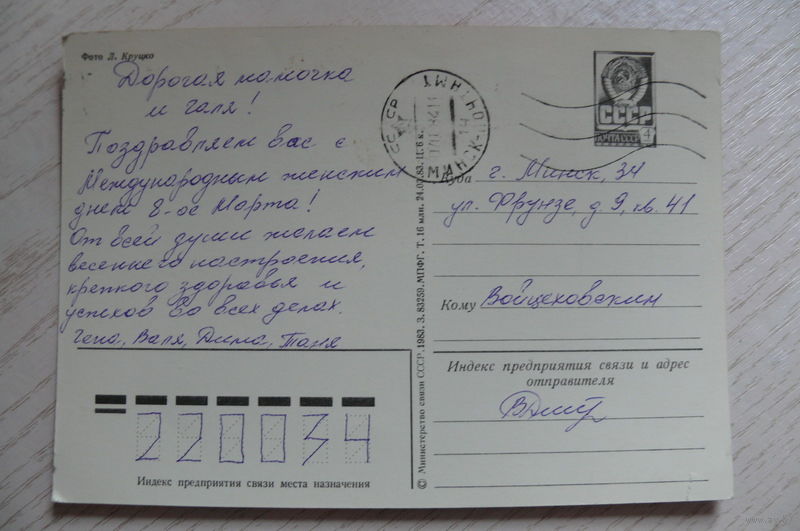 Фото Л. Круцко
Дорогая мамочка
и Галя!
Поздравляем вас с
Международным женским
днем 8-ое Марта!
От всей души желаем
весеннего настроения,
крепкого здоровья и
успехов во всех делах.
Гена, Валя, Дима, Таня
220034
Индекс предприятия связи места назначения
© Министерство связи СССР, 1983. З. 83259. МПФГ. Т. 16 млн. 24.02.83. Ц. 6 к.
МИНСК ПОЧТАМТ
СССР
СССР
ПОЧТА
4
Куда г. Минск, 34
ул. Фрунзе, д 9, кв. 41
Кому Войцеховским
Индекс предприятия связи и адрес
отправителя